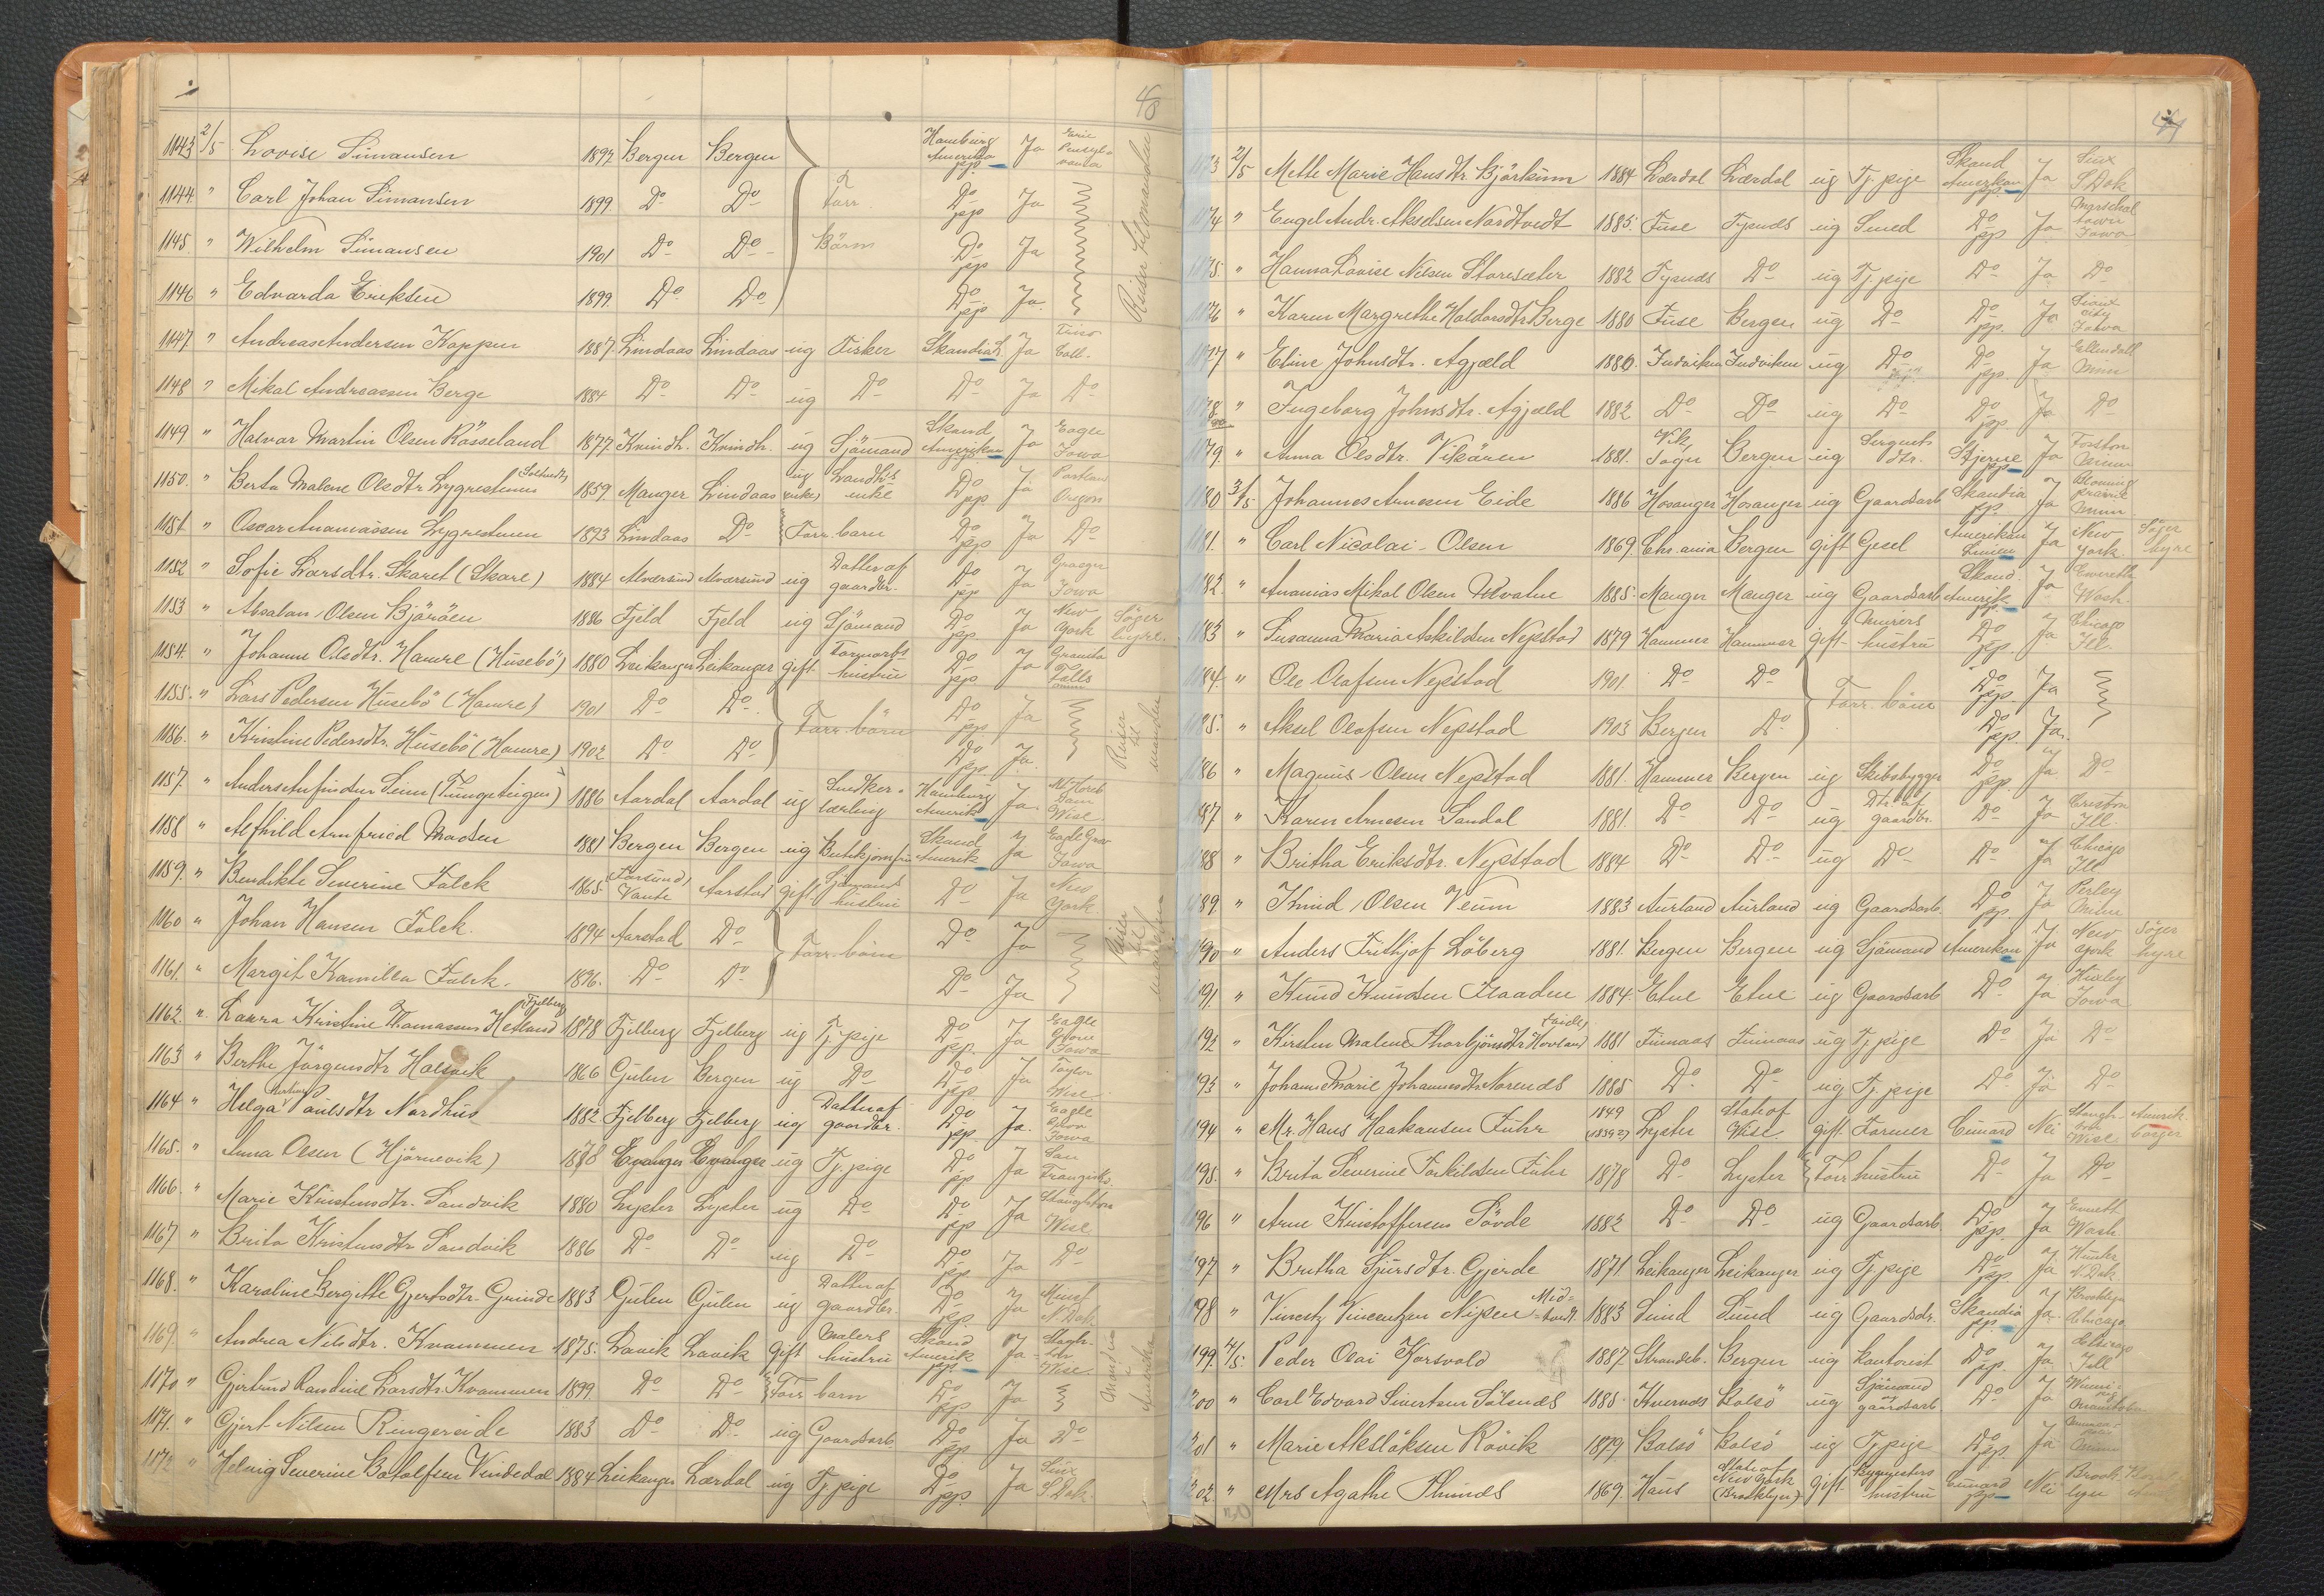 48
1143 2/5 Lovise Simansen 1892 Bergen Bergen Hamburg Amerika pp Ja Erie Pensylvania Reiser til manden
1144 " Carl Johan Simansen 1899 Do Do Farr. Do pp Ja
1145 " Wilhelm Simansen 1901 Do Do Börn Do pp Ja
1146 " Edvarda Eriksen 1899 Do Do Do pp Ja
1147 " Andreas Andersen Kappen 1887 Lindaas Lindaas ug Fisker Skandia Ja Call.
1148 " Mikal Andreassen Berge 1884 Do Do ug Do Do Ja Do
1149 " Halvar Martin Olsen Rösseland 1877 Kvindh. Kvindh. ug Sjömand Skand Amerikan pp Ja Eagle Iowa
1150 " Berta Malene Olsdtr Lygrestunn 1859 Manger Lindaas ug enke Do pp Ja Portland Oregon
1151 " Oscar Ananiassen Lygrestunn 1893 Lindaas Do Farr. barn Do pp Ja Do
1152 " Sofie Larsdtr. Skaret (Skare) 1884 Alværsund Alværsund ug Datter af gaardbr. Do pp Ja Iowa
1153 " Absalon Olsen Björöen 1886 Fjeld Fjeld ug Sjömand Do pp Ja New York Söger hyre
1154 " Johanne Olsdtr. Hamre (Husebö) 1880 Leikanger Leikanger gift Farmarb. hustru Do pp Ja Granita Falls Minn
1155 " Lars Pedersen Husebö (Hamre) 1901 Do Do Farr. börn Do pp Ja Reiser til manden
1156 " Kristine Pedersdtr. Husebö (Hamre) 1902 Do Do Do pp Ja
1157 " Anders Anfindsen Seim 1886 Aardal Aardal ug Snedker lærling Hamburg Amerika Ja Mt Horeb Dane Wisc.
1158 " Alfhild Arnfried Madsen 1881 Bergen Bergen ug Butikjomfru Skand Amerik Ja Eagle Grov Iowa
1159 " Bendikte Severine Falck 1865 (Farsund) Vanse Aarstad gift Sjömands hustru Do Ja New York Reiser til manden
1160 " Johan Hansen Falck 1894 Aarstad Do Farr. börn Do Ja
1161 " Margit Kamilla Falck 1896 Do Do Do Ja
1162 " Laura Kristine Thomassen Hetland 1878 Fjelberg Fjelberg ug Tj. pige Do pp. Ja Eagle Grove Iowa
1163 " Berthe Jörgensdtr Halsvik 1866 Gulen Bergen ug Do Do pp Ja Taylor Wisc
1164 " Helga Paulsdtr Nordhus 1882 Fjelberg Fjelberg ug Datter af gaardbr. Do pp. Ja Eagle Grov Iowa
1165 " Anna Olsen (Hjörnevik) 1878 Evanger Evanger ug Tj. pige Do pp Ja San Franzisko
1166 " Marie Kristensdtr. Sandvik 1880 Lyster Lyster ug Do Do pp Ja Stoughton Wisc
1167 " Brita Kristensdtr Sandvik 1886 Do Do ug Do Do pp Ja Do
1168 " Karoline Bergitte Gjertsdtr. Grinde 1883 Gulen Gulen ug Datter af gaardbr. Do pp. Ja N Dak.
1169 " Andrea Nilsdtr. Kvammen 1875 Lavik Lavik gift Malers hustru Skand Amerik pp. Ja Wisc. Manden i Amerika
1170 " Gjertrud Randine Larsdtr. Kvammen 1899 Do Do Farr. barn Do pp Ja
1171 " Gjert Nilsen Ringereide 1883 Do Do ug Gaardsarb. Do pp. Ja Do
1172 " Helvig Severine Botolfsen Vindedal 1884 Leikanger Lærdal ug Tj. pige Do pp. Ja Siux S Dak
1173 2/5 Mette Marie Hansdtr. Bjørkum 1884 Lærdal Lærdal ug Tj. pige Skand Amerikan pp. Ja Siux S Dak
1174 " Engel Andr. Akselsen Nordtvedt 1885 Fuse Tysnes ug Smed Do pp. Ja Marschal town Iowa
1175 " Hanna Lovise Nilsen Storesæter 1882 Tysnes Do ug Tj. pige Do Ja Do
1176 " Karen Margrethe Haldorsdtr Berge 1880 Fuse Bergen ug Do Do pp. Ja Sioux City Iowa
1177 " Eline Johnsdtr. Agjæld 1880 Indviken Indviken ug Do Do pp. Ja Ellendall Minn
1178 " Ingeborg Johnsdtr. Agjæld 1882 Do Do ug Do Do pp. Ja Do
1179 " Anna Olsdtr. Vikören 1881 Vik Sogn Bergen ug Sergents dtr. Stjerne pp Ja Forston Minn
1180 3/5 Johannes Arnesen Eide 1886 Hosanger Hosanger ug Gaardsarb Skandia pp. Ja Blooming prairie Minn
1181 " Carl Nicolai Olsen 1869 Chr.ania Bergen gift Gesel Amerikan Linien Ja New York Söger hyre
1182 " Ananias Mikal Olsen Utvatne 1885 Manger Manger ug Gaardsarb Skand. Amerik pp. Ja Everett Wash.
1183 " Susanna Maria Askildsen Nepstad 1879 Hammer Hammer gift Murers hustru Do pp. Ja Chicago Ill.
1184 " Ole Olafsen Nepstad 1901 Do Do Farr. börn Do pp. Ja
1185 " Aksel Olafsen Nepstad 1903 Bergen Do Do pp. Ja.
1186 " Magnus Olsen Nepstad 1881 Hammer Bergen ug Skibsbygger Do pp. Ja Do
1187 " Karen Arnesen Sandal 1881 Do Do ug Dtr. af gaardbr. Do Ja Creston Ill.
1188 " Britha Eriksdtr. Nepstad 1884 Do Do ug Do Do Ja Chicago Ill
1189 " Knud Olsen Veum 1883 Aurland Aurland ug Gaardsarb. Do pp. Ja Perley Minn
1190 " Anders Frithjof Löberg 1881 Bergen Bergen ug Sjömand Amerikan Ja New York Söger hyre
1191 " Knud Knudsen Flaaden 1884 Etne Etne ug Gaardsarb Do Ja Huxley Iowa
1192 " Kirsten Malene Thorbjörnsdtr Hovland 1881 Finnaas Finnaas ug Tj. pige Do Ja Do
1193 " Johanne Marie Johannesdtr Norenes 1885 Do Do ug Tj. pige Do Ja Do
1194 " Mr. Hans Haakansen Fuhr 1849 (1839?) Lyster State of Wisc. gift Farmer Cunard Nei Stoughton Wisc Amerik. borger
1195 " Brita Severine Torkildsen Fuhr 1878 Do Lyster Farr. hustru Do Ja Do
1196 " Arne Kristoffersen Sövde 1882 Do Do ug Gaardsarb Do pp. Ja Wash.
1197 " Britha Sjursdtr. Gjerde 1871 Leikanger Leikanger ug Tj. pige Do pp. Ja N. Dak
1198 " Vincentz Vincentzen Nipen Midtvedt 1883 Sund Sund ug Gaardsarb. Skandia pp. Ja Chicago
1199 4/5 Peder Olai Korsvold 1887 Strandeb. Bergen ug Kontorist Do pp. Ja Chicago Ill
1200 " Carl Edvard Sivertsen Sölsnes 1885 Kvernes Bolsö ug Sjömand gaardsarb Do Ja Winnipeg Manitoba
1201 " Marie Akslaksen Rövik 1879 Bolsö Bolsö ug Tj. pige Do pp. Ja Minn
1202 " Mrs Agathe Thunes 1869 Haus State of New York (Brooklyn) gift Bygmesters hustru Cunard pp Nei Brooklyn